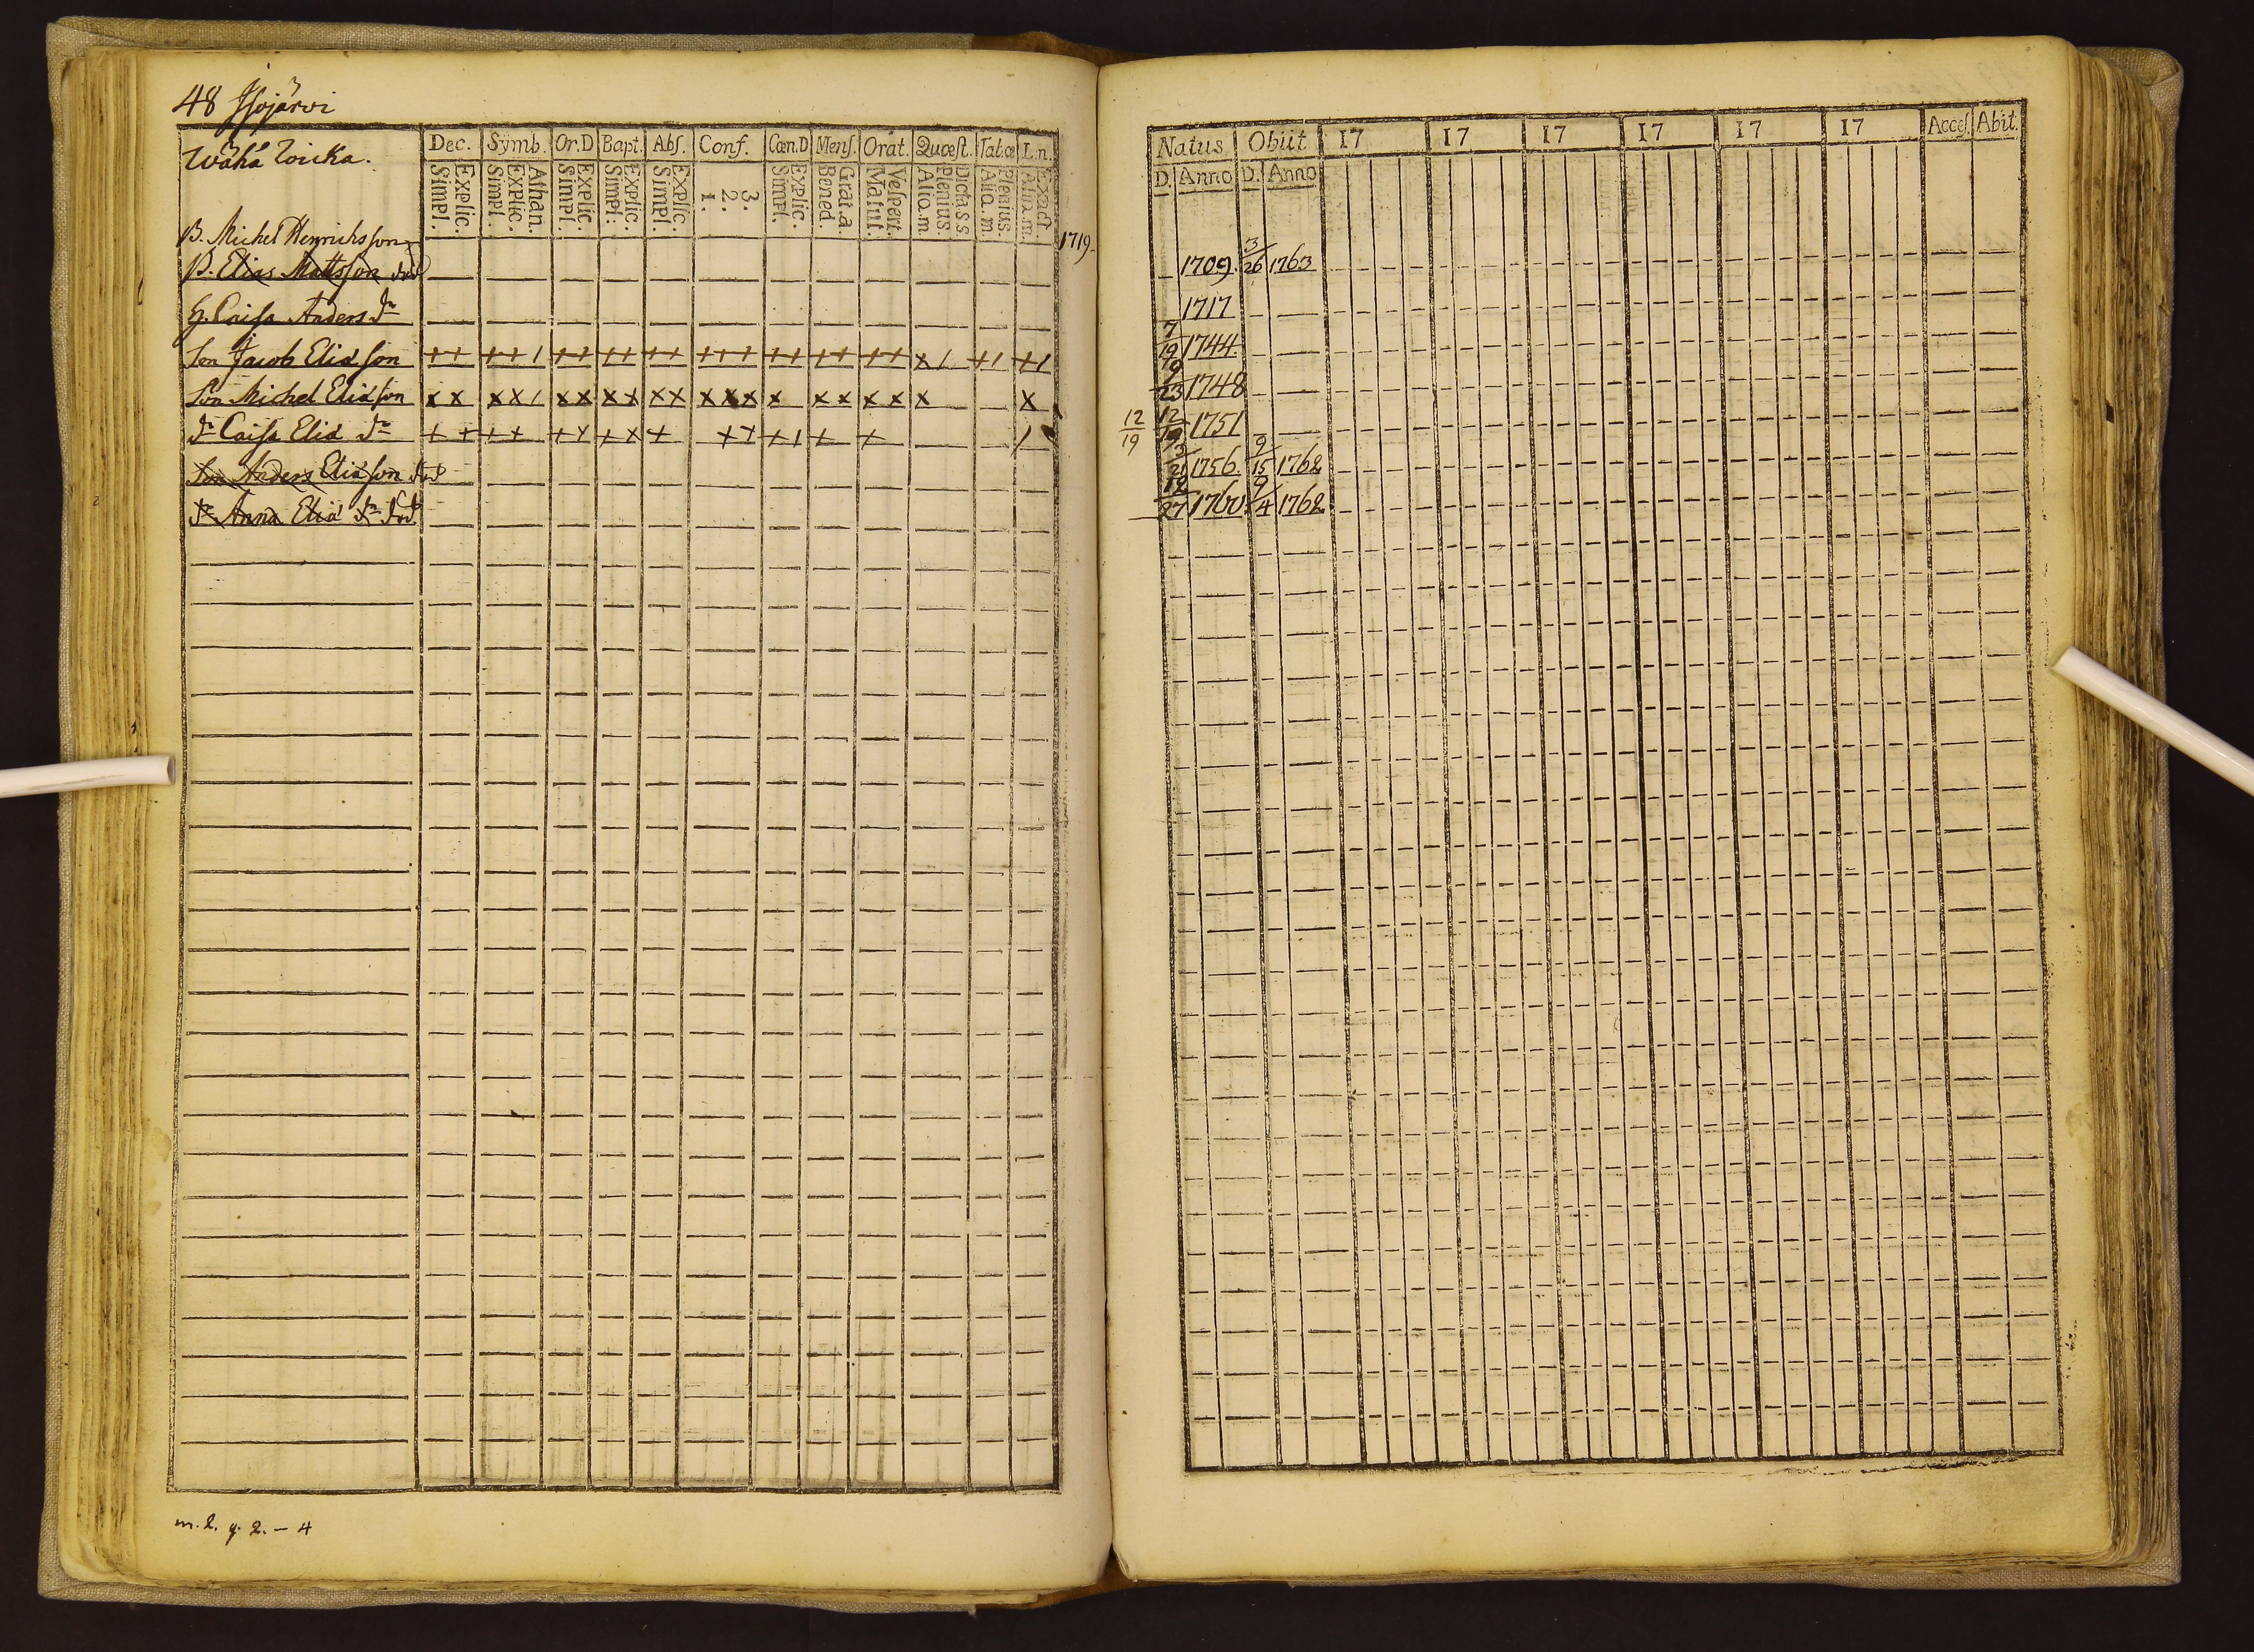 48 Isojärvi
Wähä Wicka.
Dec. Symb. Or.D Bapt. Abs. Conf. Cœn.D Mens. Orat. Quæst. Tab.œ L.n.
Explic. Simpl. Athan. Explic. Simpl. Explic. Simpl. Explic. Simpl. Explic. Simpl. 3. 2. 1. Explic. Simpl. Grat.a. Bened. Vespert. Matut. Dicta s s. Plenius. Aliq.m Plenius. Aliq.m. Exact. Aliq.m.
B. Michel Henrichsson 1719
B. Elias Mattsson död
H. Caisa Anders dr
Son Jacob Elias son ++ ++ / ++ ++ ++ +++ ++ ++ ++ x / + / + /
Son Michel Eliasson x x x x / x x x x x x x x x x x x x x x x
dr Caisa Elias dr + + + + + + + x + + + + / + + /
Son Anders Eliasson död
dr Anna Elias dr död
m. 2. q. 2. – 4
Natus Obiit 17 17 17 17 17 17 Acces. Abit.
D. Anno D. Anno
1709. 3/26 1763
1717
7/19 1744.
9/23 1748
12/19 12/19 1751
3/21 1756. 9/15 1762
12/27 1760. 9/4 1762